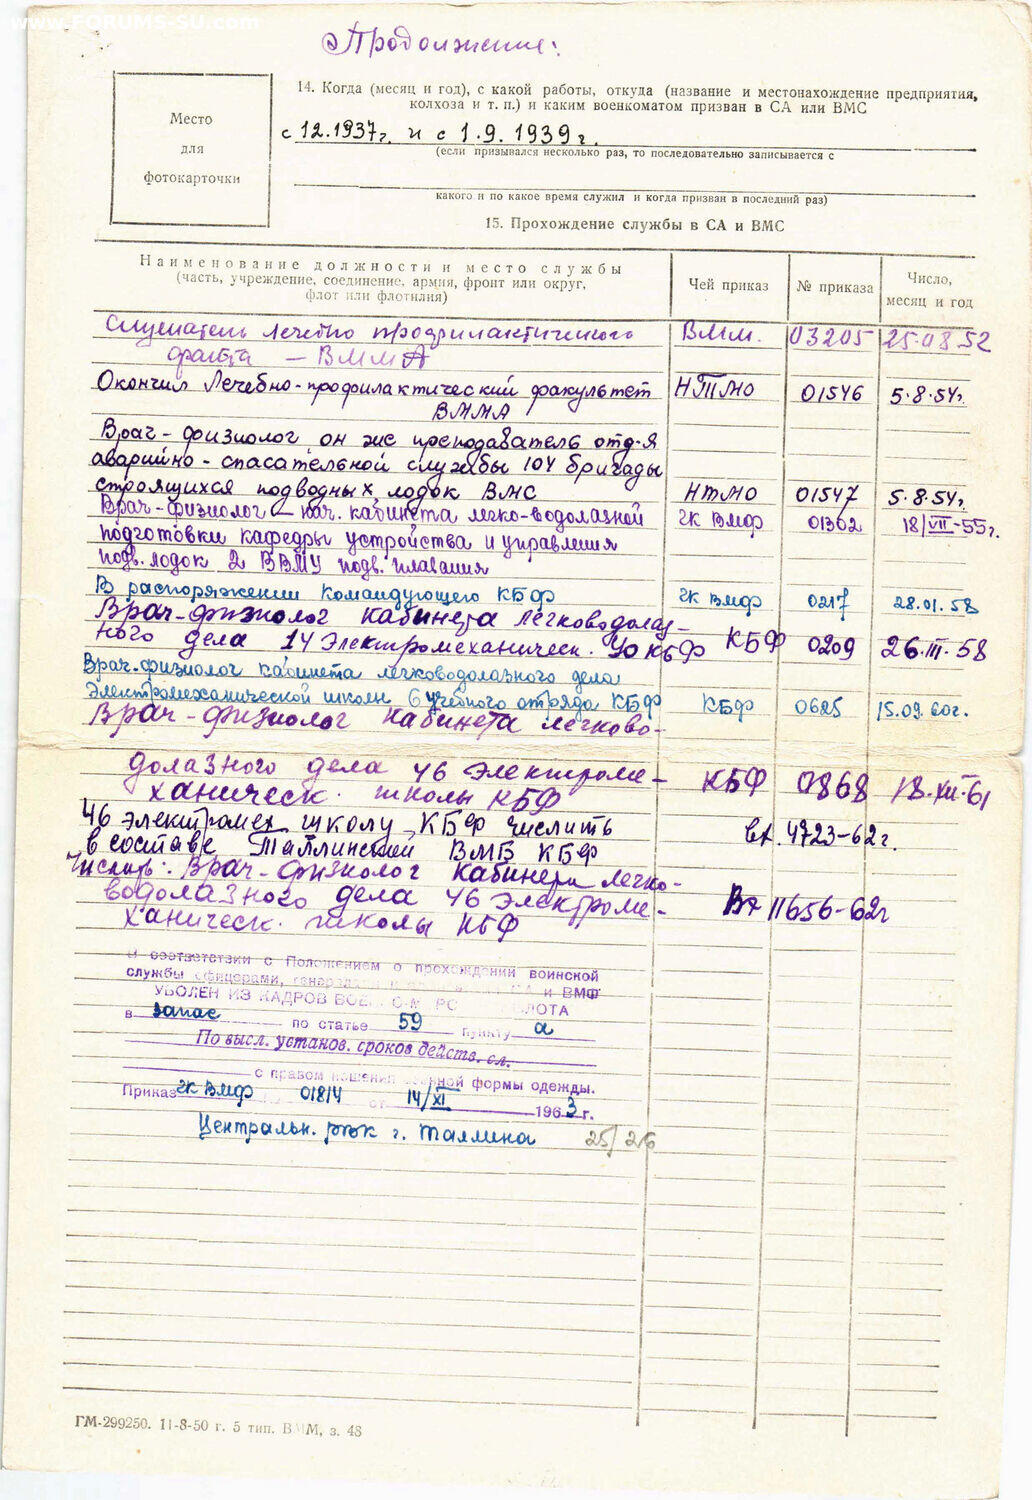 www.FORUMS-SU.com
Продолжение:
Место
для
фотокарточки
14. Когда (месяц и год), с какой работы, откуда (название и местонахождение предприятия,
колхоза и т. п.) и каким военкоматом призван в СА или ВМС
с 12.1937г. и с 1.9.1939г.
(если призывался несколько раз, то последовательно записывается с
какого и по какое время служил и когда призван в последний раз)
15. Прохождение службы в СА и ВМС
Наименование должности и место службы
(часть, учреждение, соединение, армия, фронт или округ,
флот или флотилия)
Чей приказ
№ приказа
Число,
месяц и год
Слушатель лечебно профилактического ВММ. 03205 25.08.52
фак-та — ВММА
Окончил Лечебно-профилактический факультет НТМО 01546 5.8.54г.
ВММА
Врач-физиолог он же преподаватель отд-я
аварийно-спасательной службы 104 бригады
строящихся подводных лодок ВМС НТМО 01547 5.8.54г.
Врач-физиолог — нач. кабинета легко-водолазной ГК ВМФ 01302 18/VII-55г.
подготовки кафедры устройства и управления
подв. лодок 2 ВВМУ подв. плавания
В распоряжении командующего КБФ ГК ВМФ 0217 28.01.58
Врач-физиолог кабинета легководолаз-
ного дела 14 Электромеханическ. УО КБФ КБФ 0209 26.III.58
Врач-физиолог кабинета легководолазного дела
Электромеханической школы 6 учебного отряда КБФ КБФ 0625 15.09.60г.
Врач-физиолог кабинета легково-
долазного дела 46 электроме- КБФ 0868 18.XII-61
ханическ. школы КБФ
46 электромех. школу КБФ числить вх. 4723-62г.
в составе Таллинской ВМБ КБФ
Числить: Врач-физиолог кабинета легко-
водолазного дела 46 Электроме- Вх 11656-62г
ханическ. школы КБФ
В соответствии с Положением о прохождении воинской
службы офицерами, генералами и СА и ВМФ
УВОЛЕН ИЗ КАДРОВ ВОЕННО-МОРСКОГО ФЛОТА
в запас по статье 59 пункту а
По высл. установ. сроков действ. сл.
с правом ношения военной формы одежды.
Приказ ГК ВМФ 01814 от 14/XI 1963г.
Центральн. рвк г. Таллина 25/26
ГМ-299250. 11-8-50 г. 5 тип. ВММ, з. 48